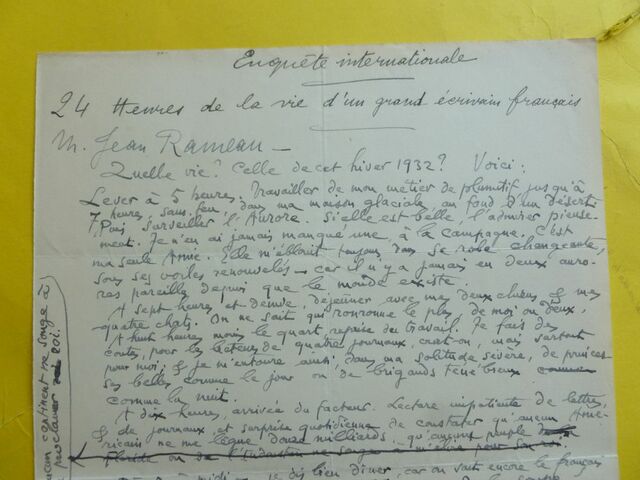 Enquête internationale
24 Heures de la vie d'un grand écrivain français
M. Jean Rameau —
Quelle vie? Celle de cet hiver 1932? Voici:
Lever à 5 heures. Travailler de mon métier de plumitif jusqu'à
7 heures, sans feu, dans ma maison glaciale, au fond d'un désert.
Puis surveiller l'Aurore. Si elle est belle, l'admirer pieuse-
ment. Je n'en ai jamais manqué une, à la campagne. C'est
ma seule Amie. Elle m'éblouit toujours dans sa robe changeante,
sous ses voiles renouvelés — car il n'y a jamais eu deux auro-
res pareilles depuis que le monde existe.
A sept heures et demie, déjeuner avec mes deux chiens & mes
quatre chats. On ne sait qui ronronne le plus, de moi ou d'eux.
A huit heures moins le quart, reprise du travail. Je fais des
contes, pour les lecteurs de quatre journaux, croit-on, mais surtout
pour moi; & je m'entoure ainsi, dans ma solitude sévère, de princes-
ses belles comme le jour ou de brigands ténébreux comme
comme la nuit.
A dix heures, arrivée du facteur. Lecture impatiente de lettres
& de journaux, et surprise quotidienne de constater qu'aucun Amé-
ricain ne me lègue douze milliards qu'aucun peuple
Floride ou de l'Indoustan ne songe à m'élire pour son roi
midi je dis bien dîner, car on sait encore le français
aucun continent ne songe à
me proclamer roi.